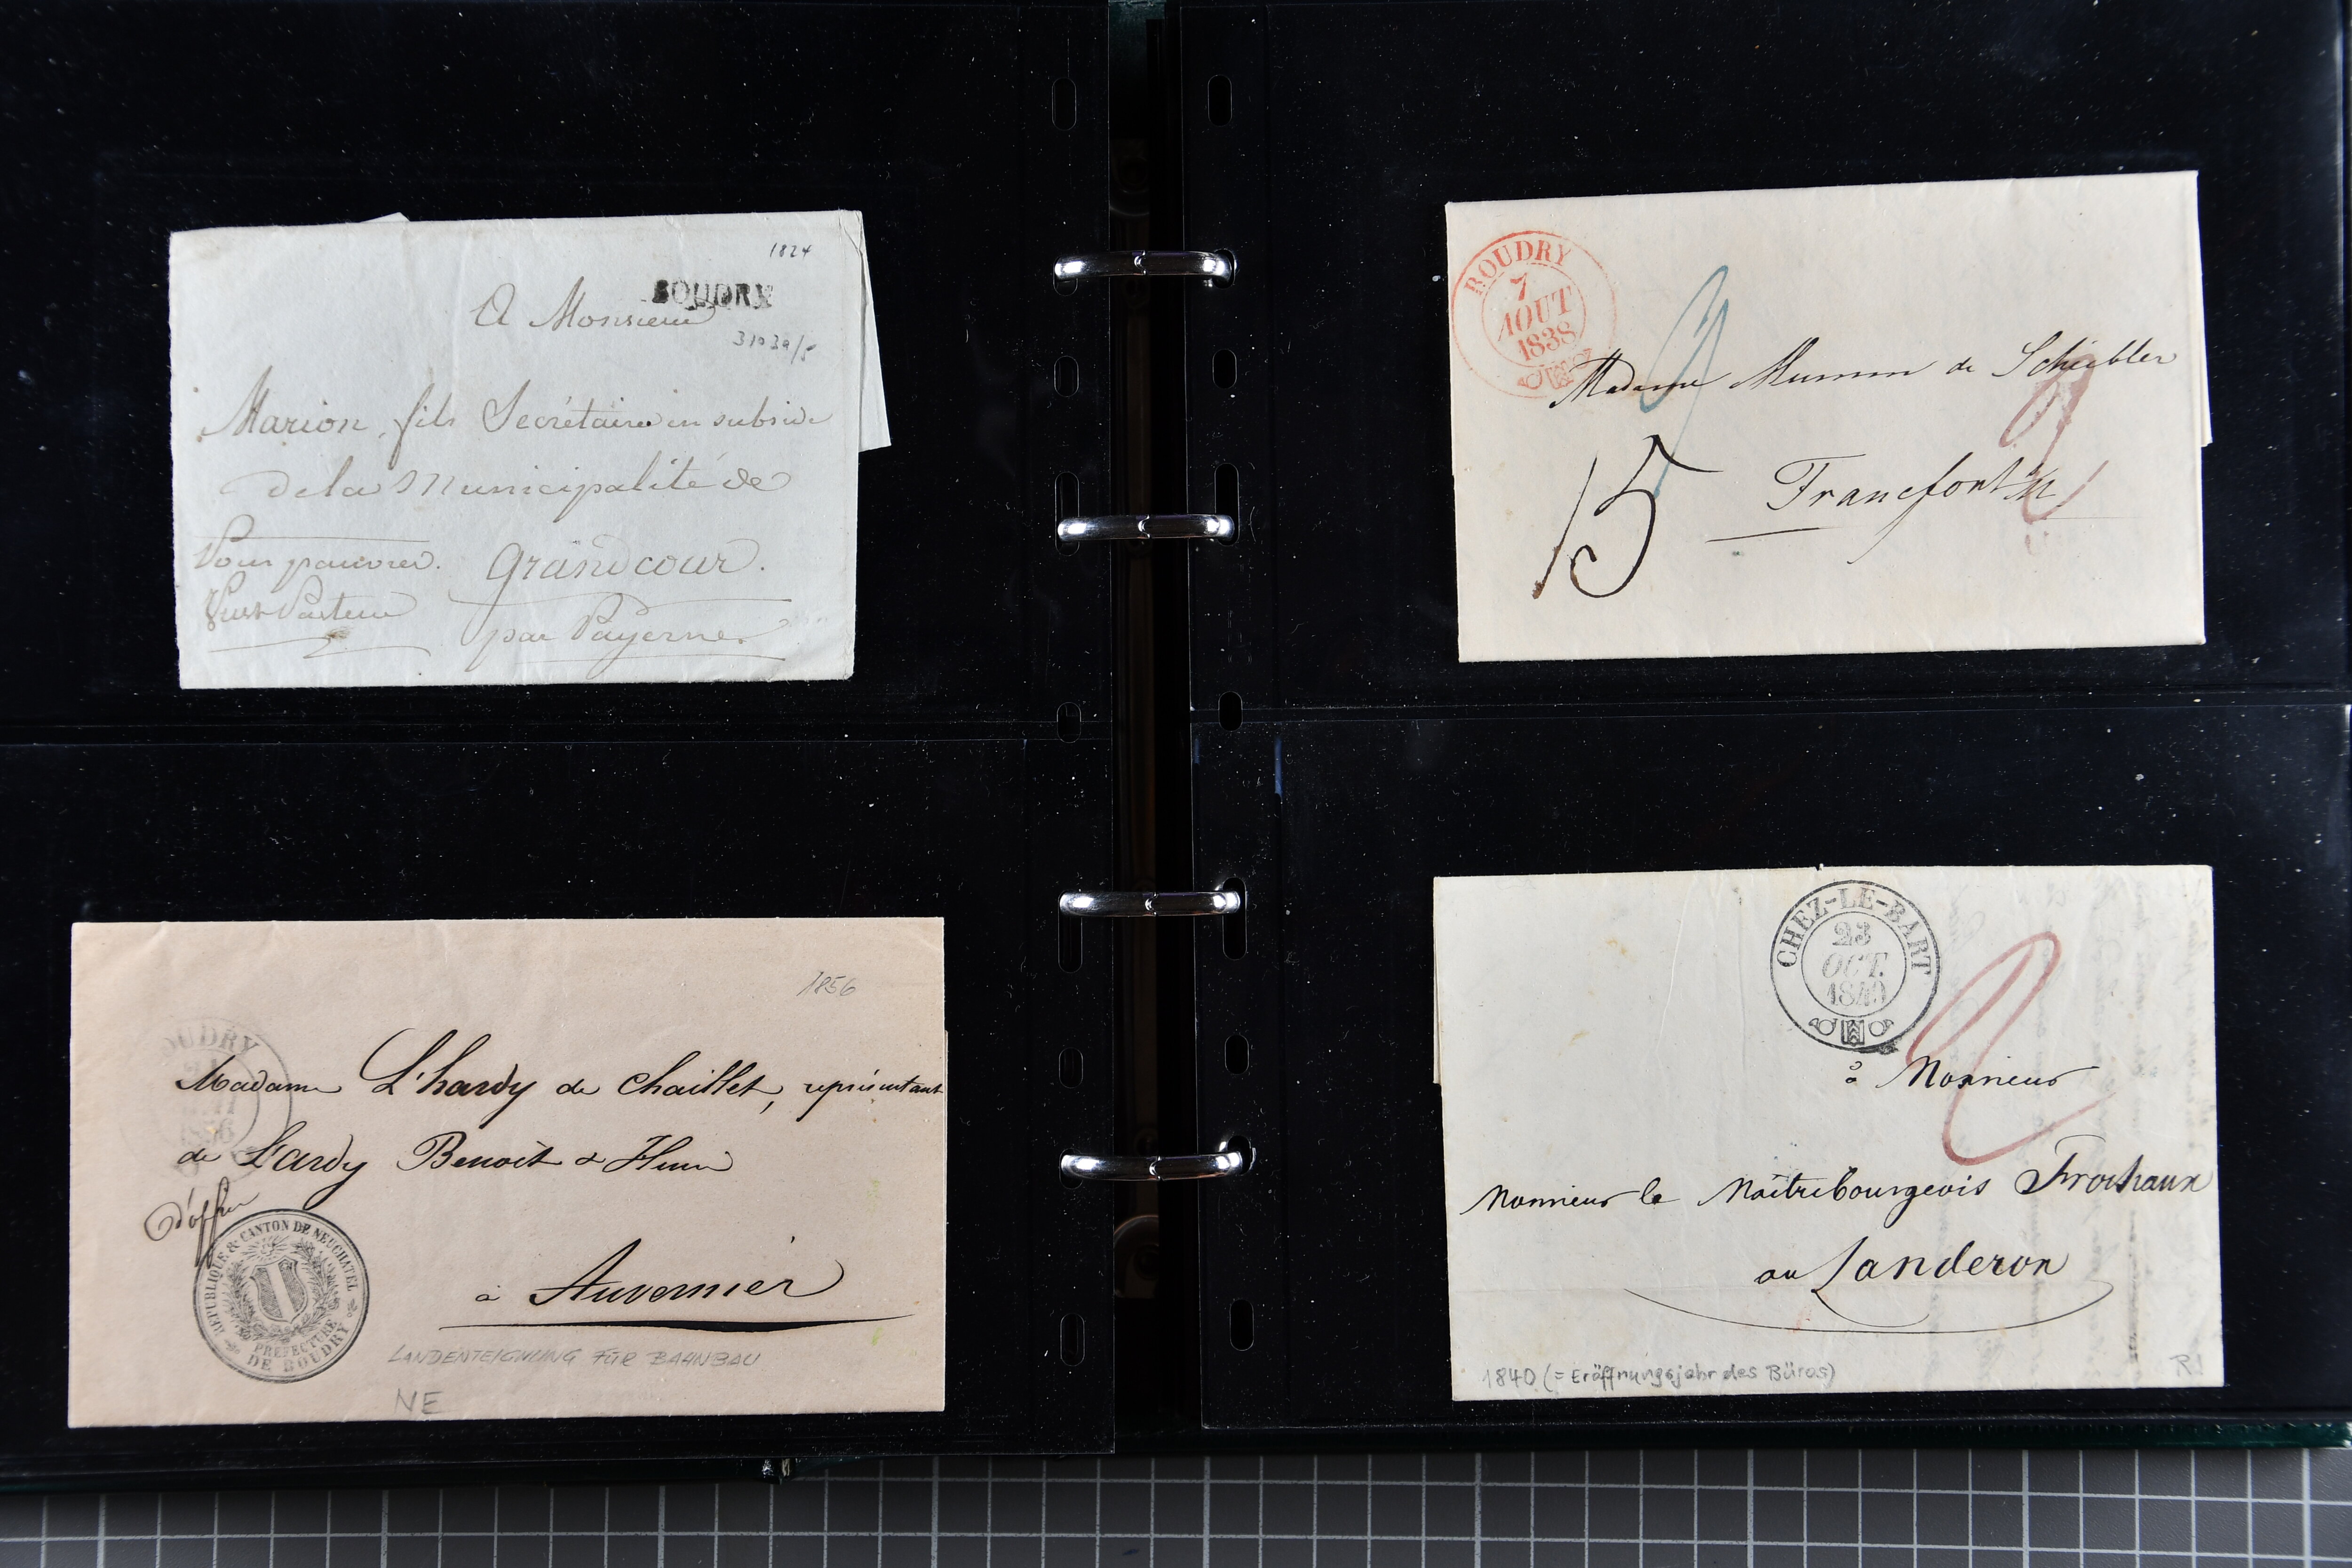 1824
BOUDRY
A Monsieur
3103a/5
Marion, fils Secrétaire en subside
de la Municipalité de
Pour pauvres. Grandcour.
par Payerne.
BOUDRY
7
AOUT
1838
Madame Mumm de Scheibler
15
Francfort s/M
1856
BOUDRY
Madame L'hardy de Chaillet, représentant
de L'ardy Benoît & Henri
d'office
REPUBLIQUE & CANTON DE NEUCHATEL
PREFECTURE
DE BOUDRY
à Auvernier
LANDENTEIGNUNG FÜR BAHNBAU
NE
CHEZ-LE-BART
23
OCT.
1840
à Monsieur
Monsieur le Maitrebourgeois Frochaux
au Landeron
1840 (= Eröffnungsjahr des Büros)